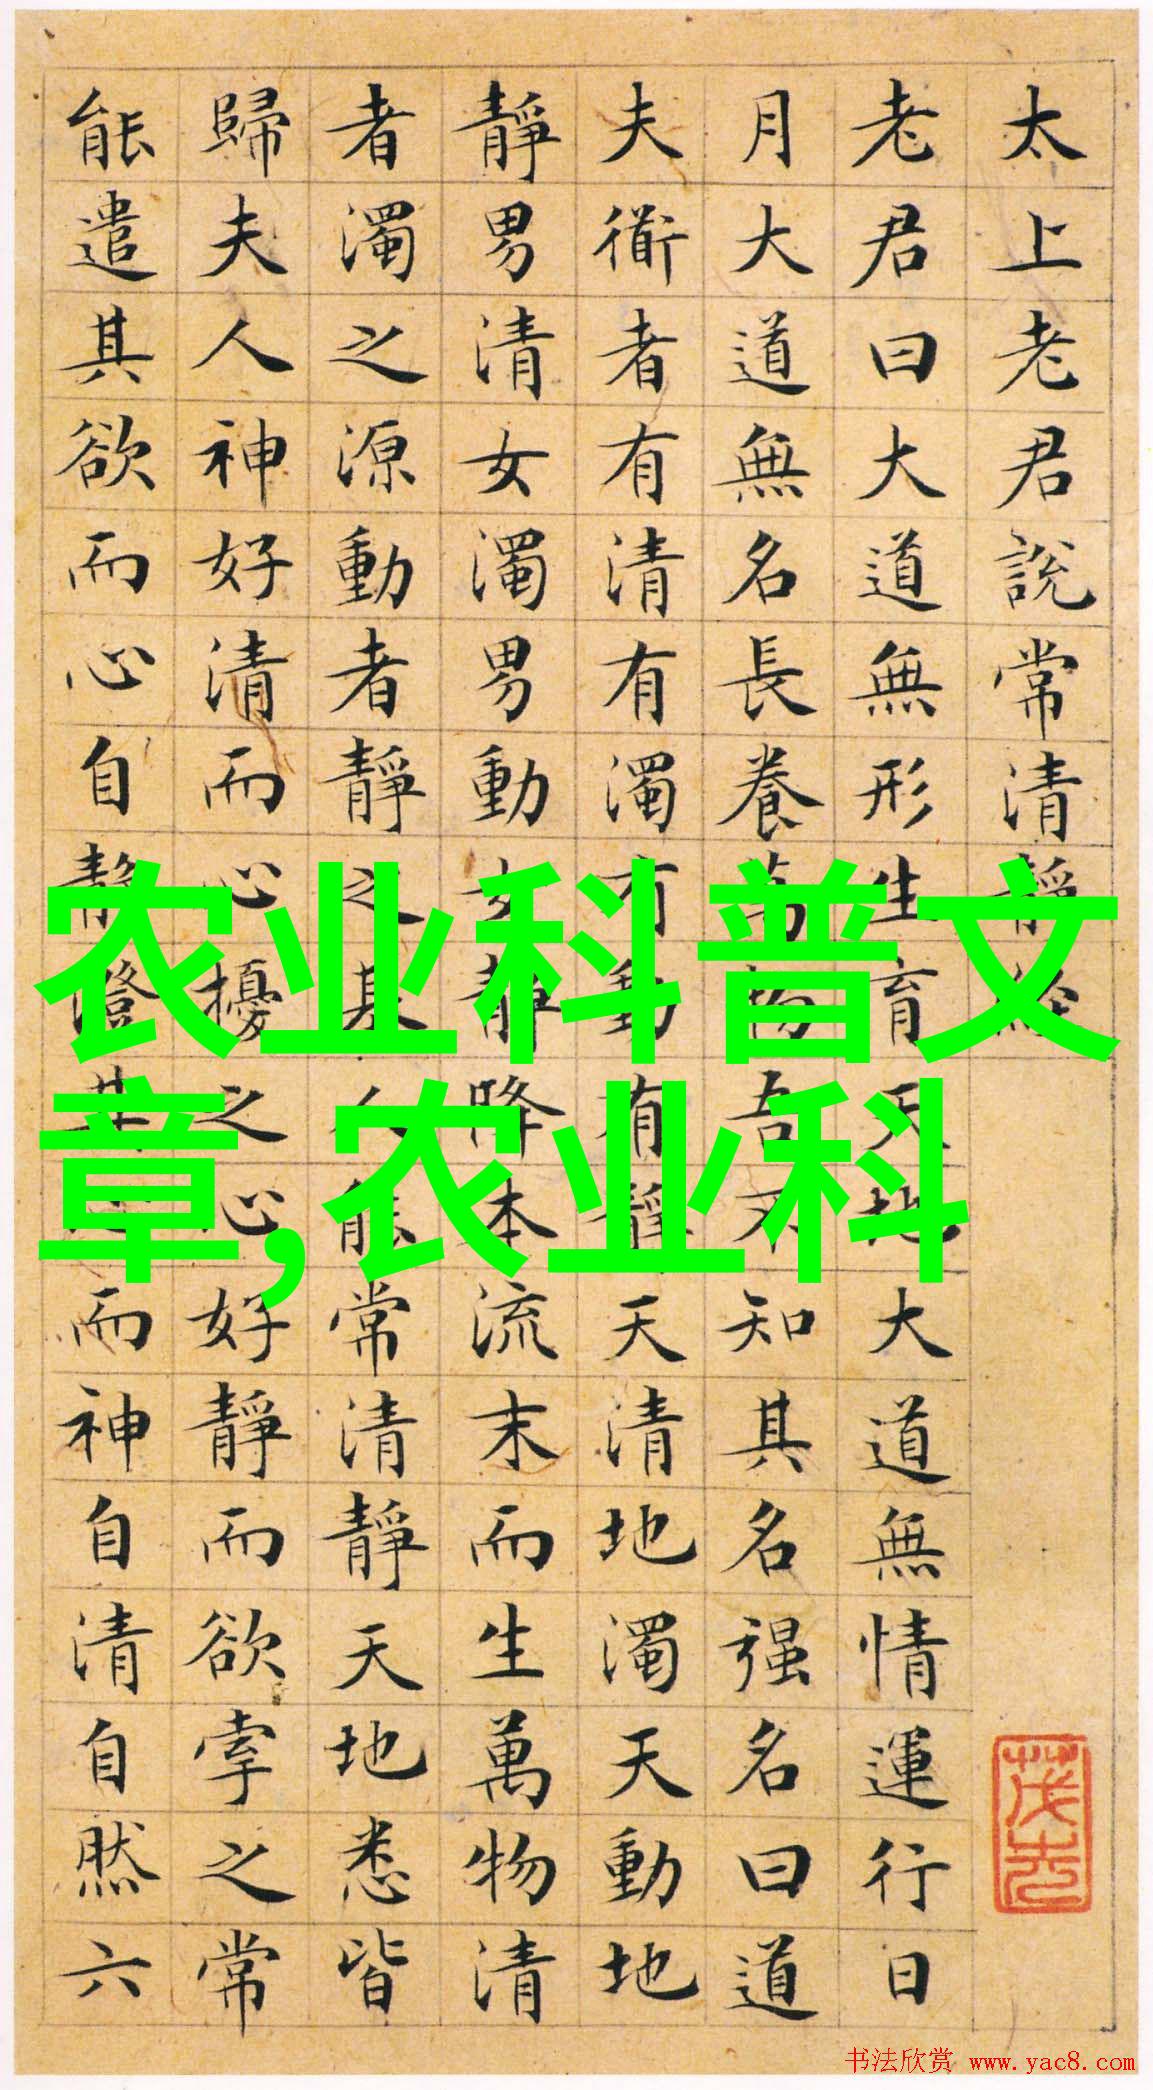 太上老君說常清靜經
老君曰大道無形生育天地大道無情運行日
月大道無名長養萬物吾不知其名强名曰道
夫衜者有清有濁有動有靜天清地濁天動地
靜男清女濁男動女靜降本流末而生萬物清
者濁之源動者靜之基人能常清靜天地悉皆
歸夫人神好清而心擾之心好靜而欲牽之常
能遣其欲而心自靜澄其心而神自清自然六
农业科普文
章,农业科
书法欣赏 www.yac8.com